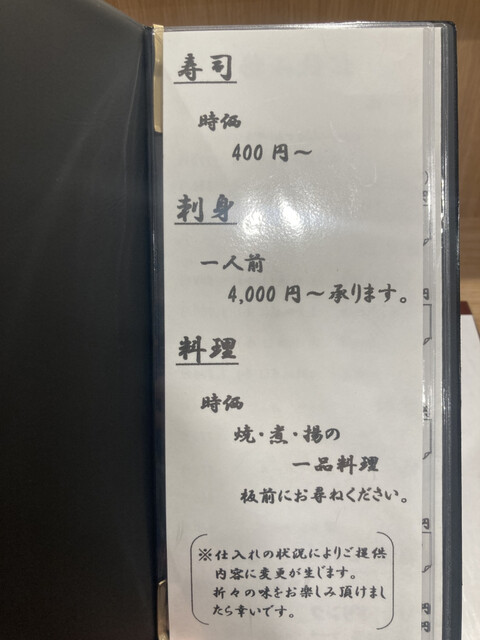 寿司
時価
400円～
刺身
一人前
4,000円～承ります。
料理
時価
焼・煮・揚の
一品料理
板前にお尋ねください。
※仕入れの状況によりご提供
内容に変更が生じます。
折々の味をお楽しみ頂けまし
たら幸いです。
円
円
円
円